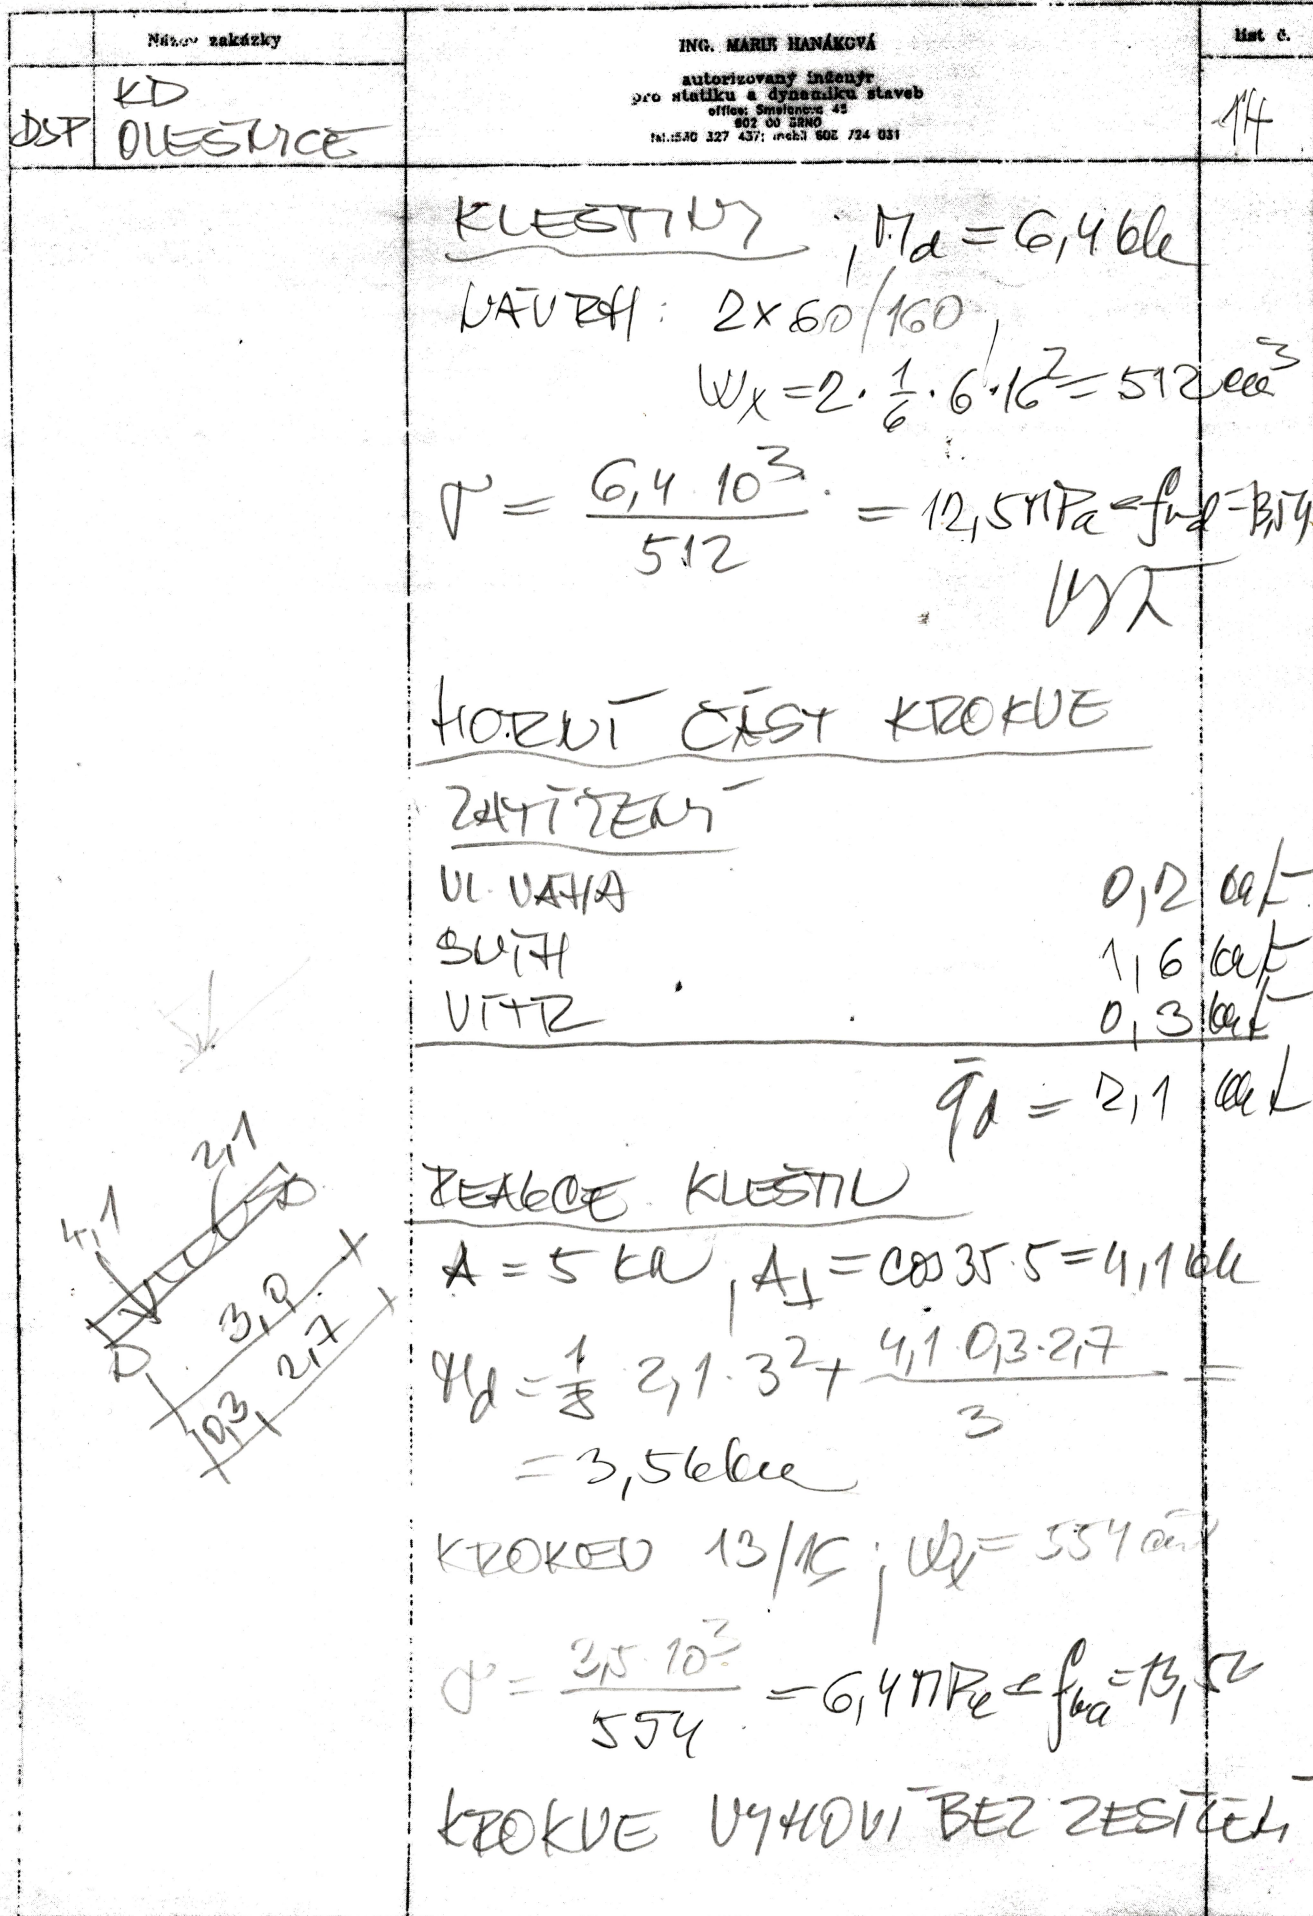 Název zakázky
ING. MARIE HANÁKOVÁ
list č.
autorizovaný inženýr
pro statiku a dynamiku staveb
office: Smetanova 45
602 00 BRNO
tel.:530 327 437; mobil 608 724 031
DSP
KD
OLEŠNICE
14
KLEŠTINY ; Md = 6,4 kNm
NÁVRH: 2x60/160,
Wx = 2 · 1/6 · 6 · 16² = 512 cm³
σ = 6,4 10³ / 512 = 12,5 MPa < fmd = 13,54
VYH
HORNÍ ČÁST KROKVE
ZATÍŽENÍ
VL. VÁHA 0,2 kN/m
SNÍH 1,6 kN/m
VÍTR 0,3 kN/m
qd = 2,1 kN/m
REAKCE KLEŠTIN
A = 5 kN, A⊥ = cos 35 · 5 = 4,1 kN
Md = 1/8 2,1 · 3² + 4,1 0,3 · 2,7 / 3 =
= 3,5 kNm
KROKEV 13/16 ; Wx = 554 cm³
σ = 3,5 · 10³ / 554 = 6,4 MPa < fmd = 13,5
KROKVE VYHOVÍ BEZ ZESÍLENÍ
4,1
2,1
3,0
0,3
2,7